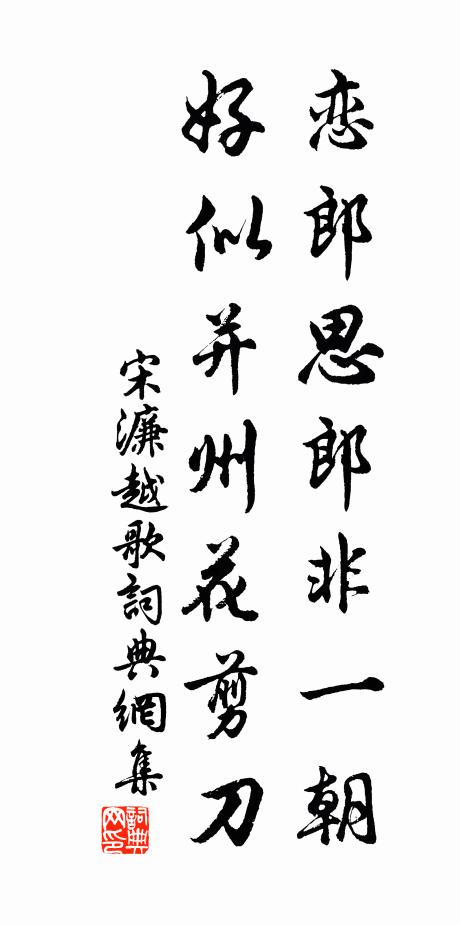 恋郎思郎非一朝
好似并州花剪刀
宋濂越歌詞典網集
詞典網印